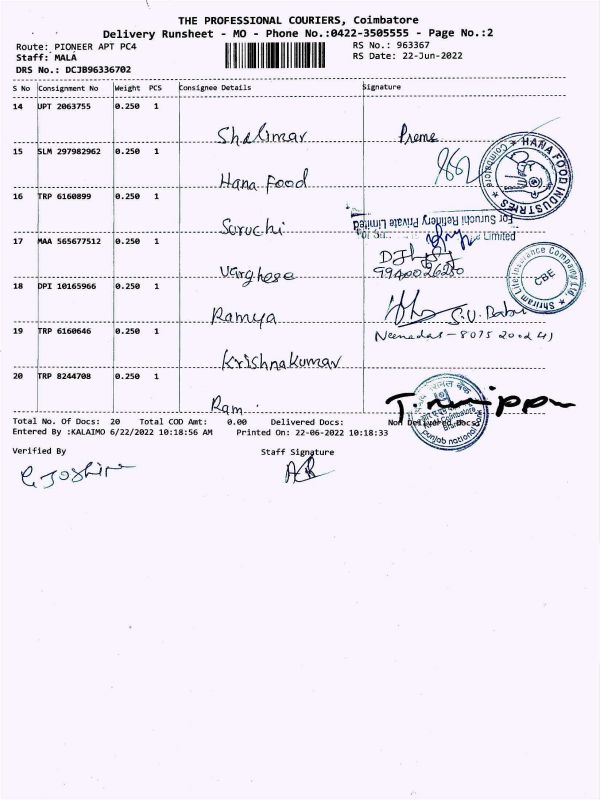 THE PROFESSIONAL COURIERS, Coimbatore
Delivery Runsheet - MO - Phone No.:0422-3505555 - Page No.:2
Route: PIONEER APT PC4 RS No.: 963367
Staff: MALA RS Date: 22-Jun-2022
DRS No.: DCJB96336702
S No Consignment No Weight PCS Consignee Details Signature
14 UPT 2063755 0.250 1
Shalimar Preme
15 SLM 297982962 0.250 1
Hana Food
HANA FOOD INDUSTRIES * Coimbatore *
16 TRP 6160899 0.250 1
Suruchi
For Suruchi Refinery Private Limited
Limited
17 MAA 565677512 0.250 1
Varghese 9940026280
Shriram Life Insurance Company Ltd * CBE
18 DPI 10165966 0.250 1
Ramya S.V. Babu
19 TRP 6160646 0.250 1
Krishnakumar
20 TRP 8244708 0.250 1
Ram
punjab national
Total No. Of Docs: 20 Total COD Amt: 0.00 Delivered Docs: Non Delivered Docs:
Entered By :KALAIMO 6/22/2022 10:18:56 AM Printed On: 22-06-2022 10:18:33
Verified By Staff Signature